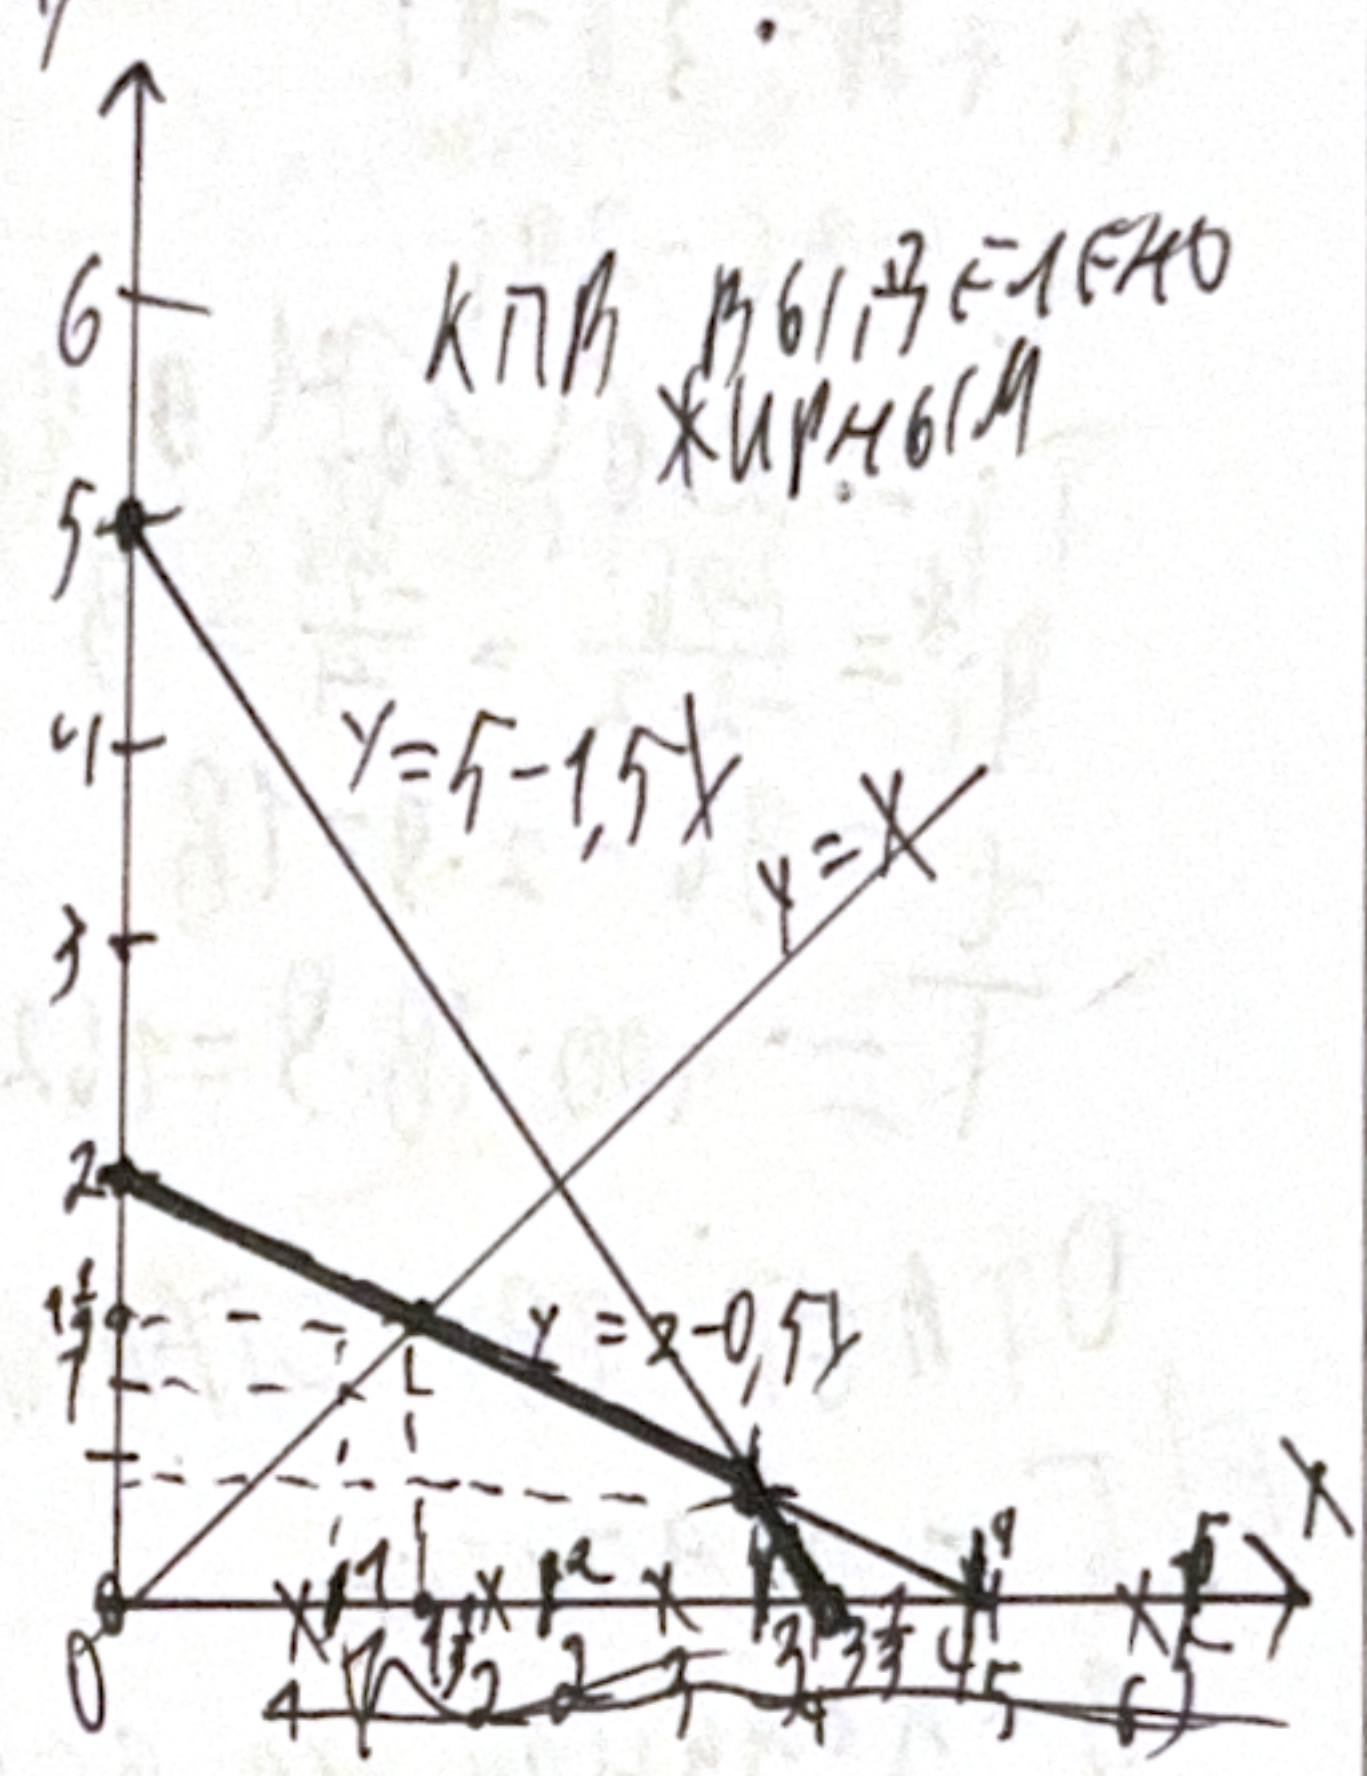 6
КПВ ВЫДЕЛЕНО
ЖИРНЫМ
5
4
y=5-1,5X
y=X
3
2
1 1/3
y=2-0,5X
1
X
1
2
4
5
0
1 1/3
3
3 1/3
4
5